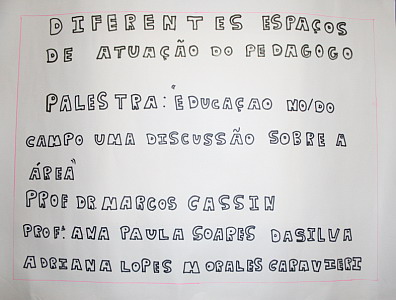 DIFERENTES ESPAÇOS
DE ATUAÇÃO DO PEDAGOGO
PALESTRA: "EDUCAÇAO NO/DO
CAMPO UMA DISCUSSÃO SOBRE A
ÁREA"
PROF DR. MARCOS CASSIN
PROFª. ANA PAULA SOARES DASILVA
ADRIANA LOPES MORALES CARAVIERI